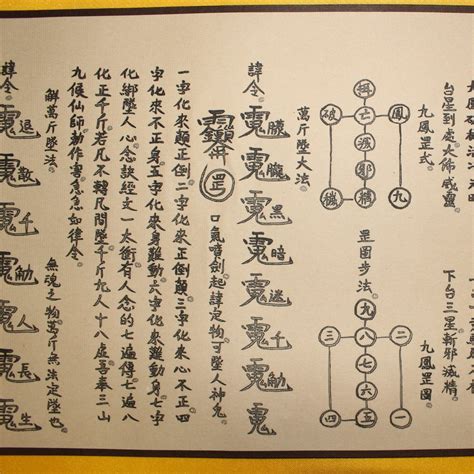 台星到處大佈威靈
九鳳罡式
鳳
九
亡
邪
精
破
穢
下台三星斬邪滅精
九鳳罡圖
罡圖步法
二
一
九
八
七
六
五
三
四
萬斤墜大法
諱令
黑
暗
迷
千
觔
罡
口氣噴劍起諱定物可墜人神鬼
一字化來顛正倒二字化來正倒顛三字化來心不正四
字化來不正身五字化來身難動六字化來難動身七字
化綁墜人心念訣經文一太衝有人念的七遍得七八遍
化正千斤若凡不轉凡間墜千斤九人十八虛吾奉三山
九候仙師勅作害急急如律令
解萬斤墜法
無魂之物萬斤無法定墜也
諱令
退
散
千
觔
人
長
生